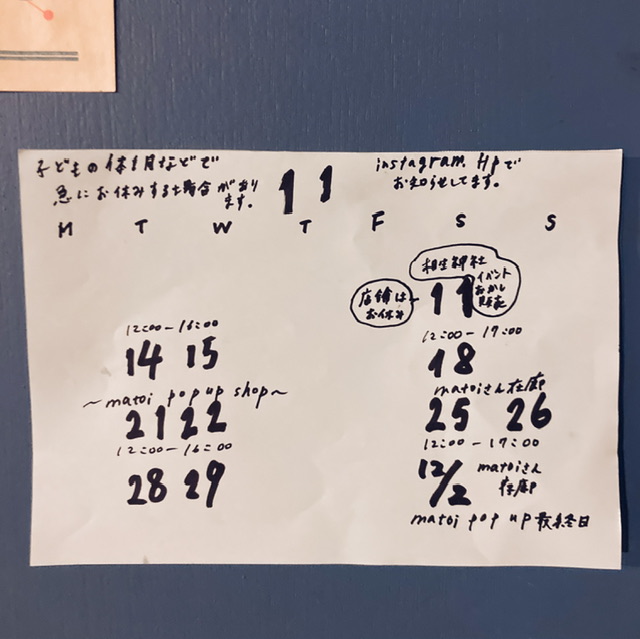 子どもの体調などで
急にお休みする場合があり
ます。
11
instagram. Hpで
お知らせしてます。
M T W T F S S
相生神社
店舗は
お休み
11
イベント
おかし
販売
12:00-16:00
14 15
12:00-17:00
18
~matoi pop up shop~
21 22
matoiさん在廊
25 26
12:00-16:00
28 29
12:00-17:00
12/2
matoiさん
在廊
matoi pop up 最終日